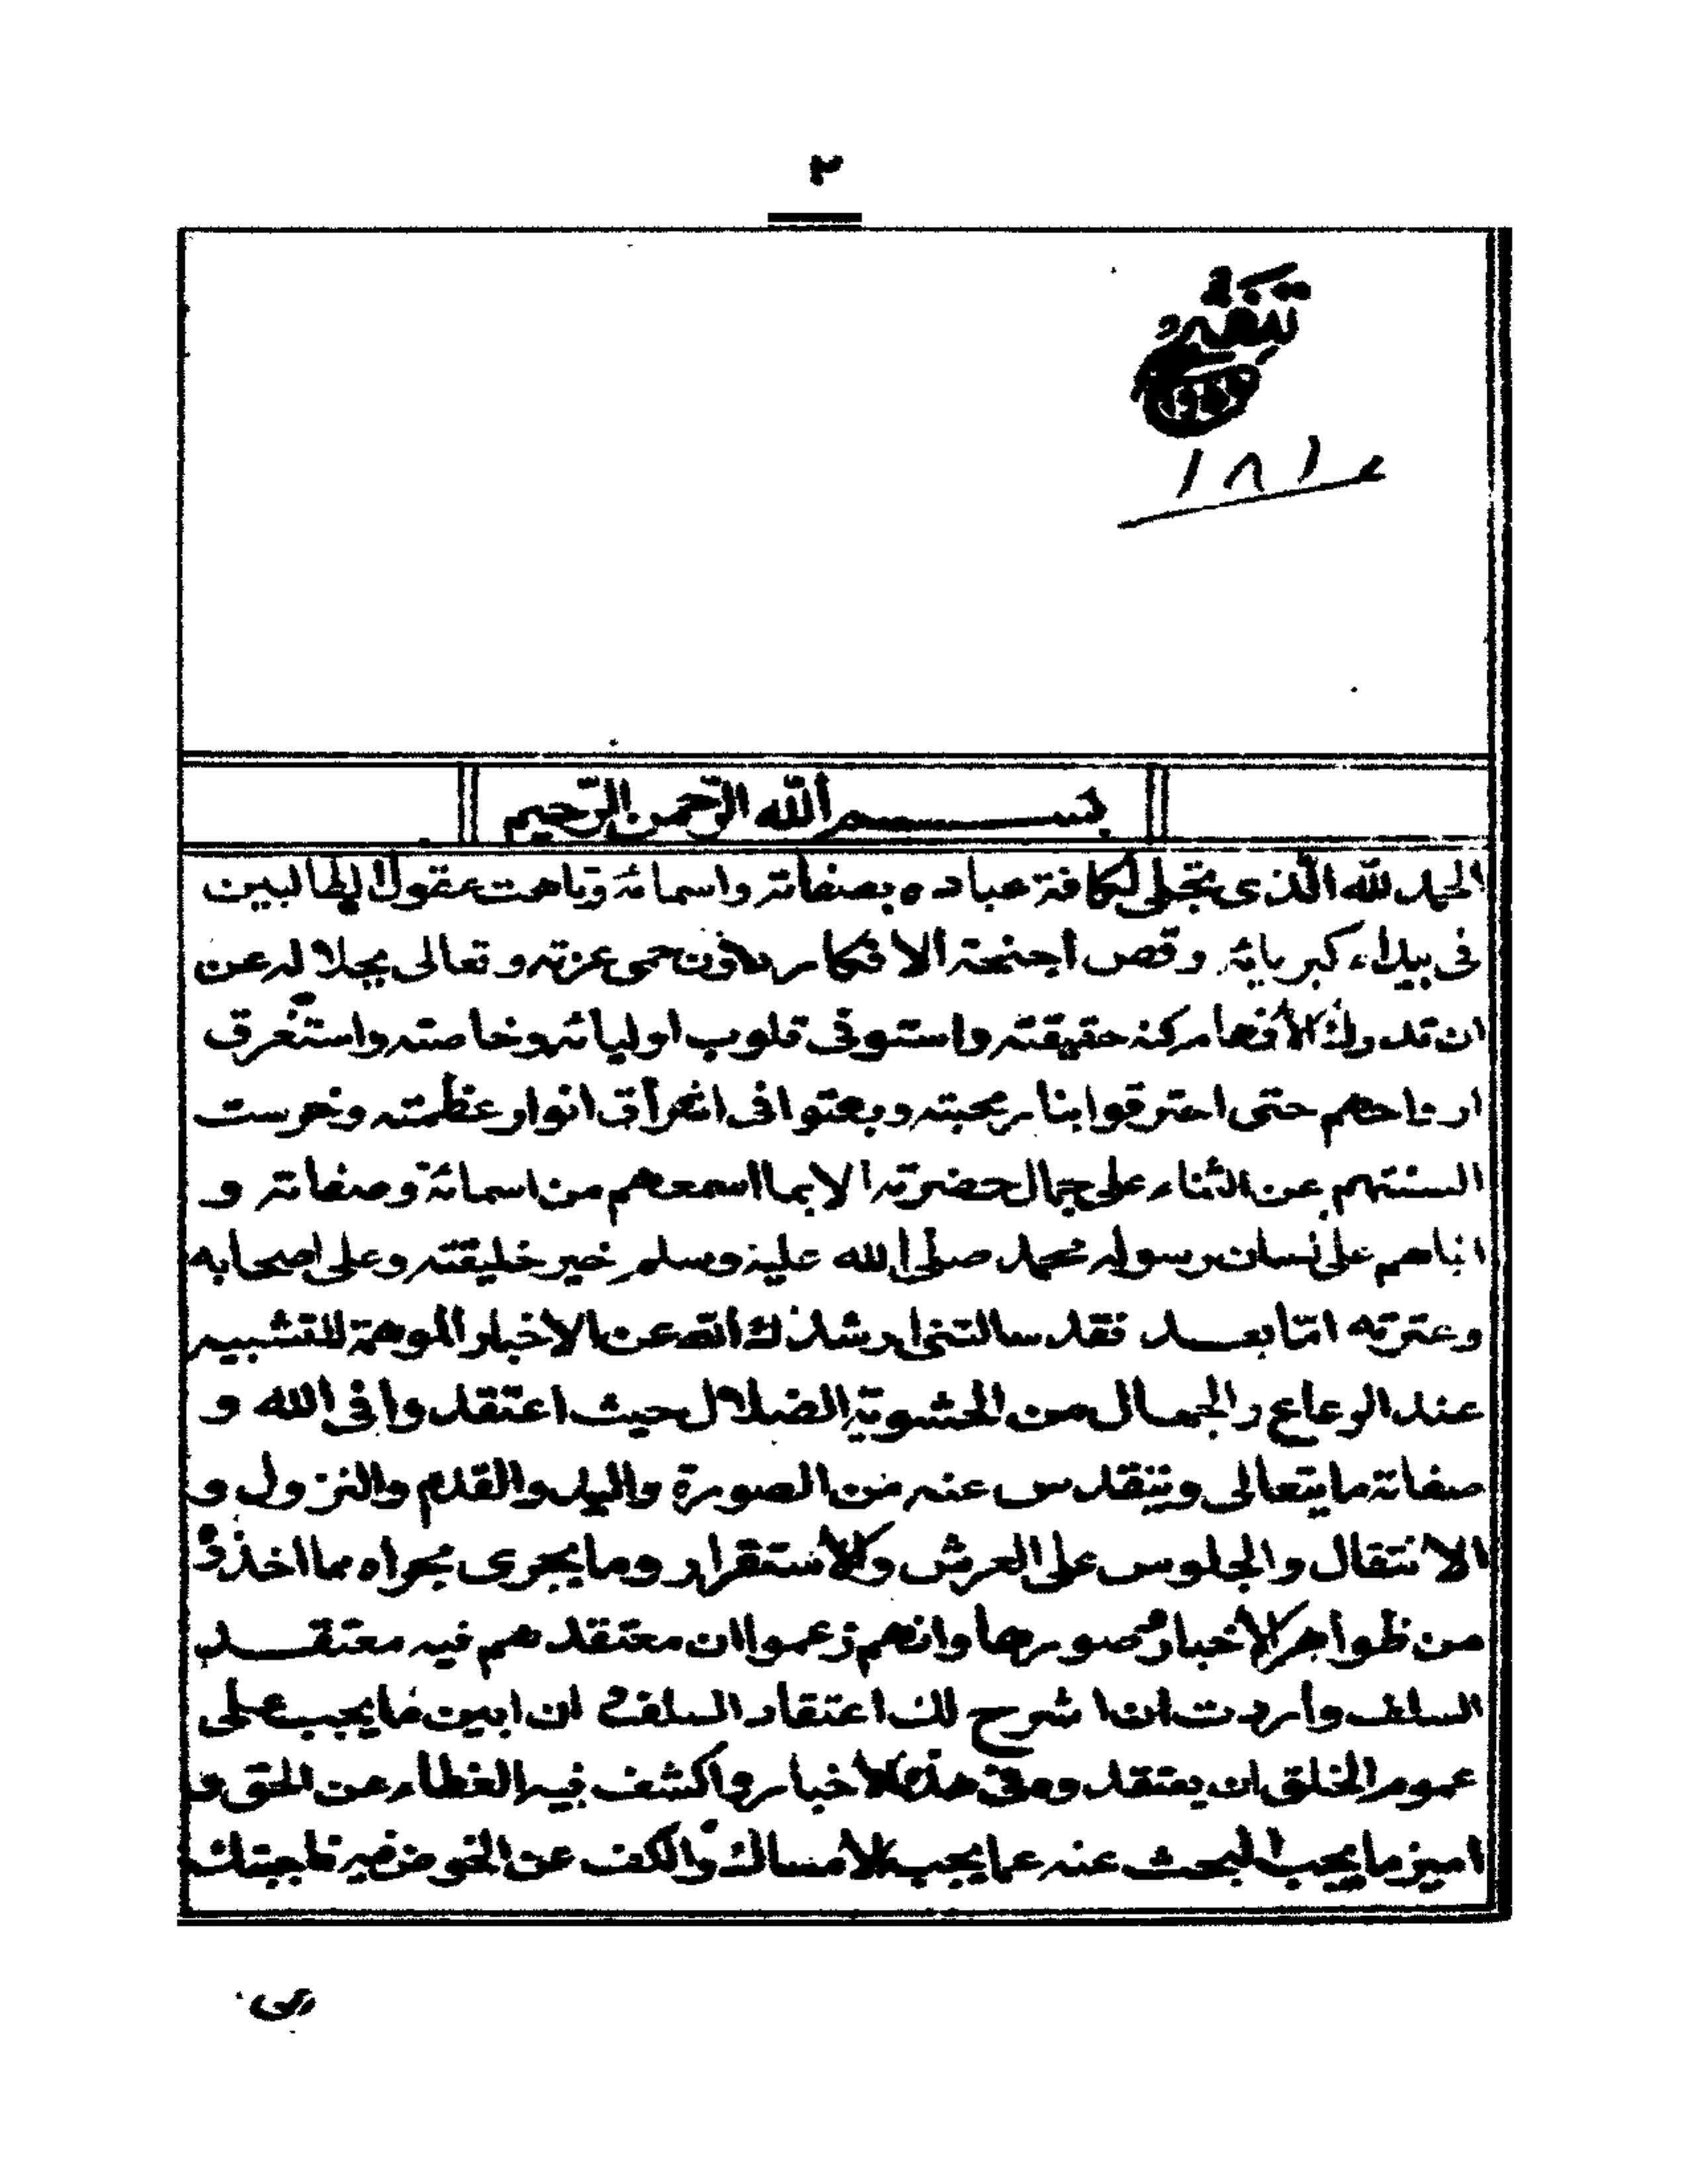 ٢
١٨١٠
بسم الله الرحمن الرحيم
الحمد لله الذى تجلى لكافة عباده بصفاته واسمائه وتاهت عقول الطالبين
فى بيداء كبريائه وقص اجنحة الافكار دون حمى عزته وتعالى بجلاله عن
ان تدرك الافهام كنه حقيقته واستوفى قلوب اوليائه وخاصته واستغرق
ارواحهم حتى احترقوا بنار محبته وبهتوا فى اشراق انوار عظمته وخرست
السنتهم عن الثناء على جمال حضرته الا بما اسمعهم من اسمائه وصفاته و
انباهم على لسان رسوله محمد صلى الله عليه وسلم خير خليقته وعلى اصحابه
وعترته اما بعد فقد سالتنى ارشدك الله عن الاخبار الموهمة للتشبيه
عند الرعاع والجهال من الحشوية الضلال حيث اعتقدوا فى الله و
صفاته ما يتعالى ويتقدس عنه من الصورة واليد والقدم والنزول و
الانتقال والجلوس على العرش والاستقرار وما يجرى مجراه مما اخذوه
من ظواهر الاخبار وصورها وانهم زعموا ان معتقدهم فيه معتقد
السلف وأردت ان اشرح لك اعتقاد السلف و ان ابين ما يجب على
عموم الخلق ان يعتقدوه فى هذه الاخبار واكشف فيه الغطاء عن الحق و
اميز ما يجب البحث عنه عما يجب الامساك والكف عن الخوض فيه فاجبتك